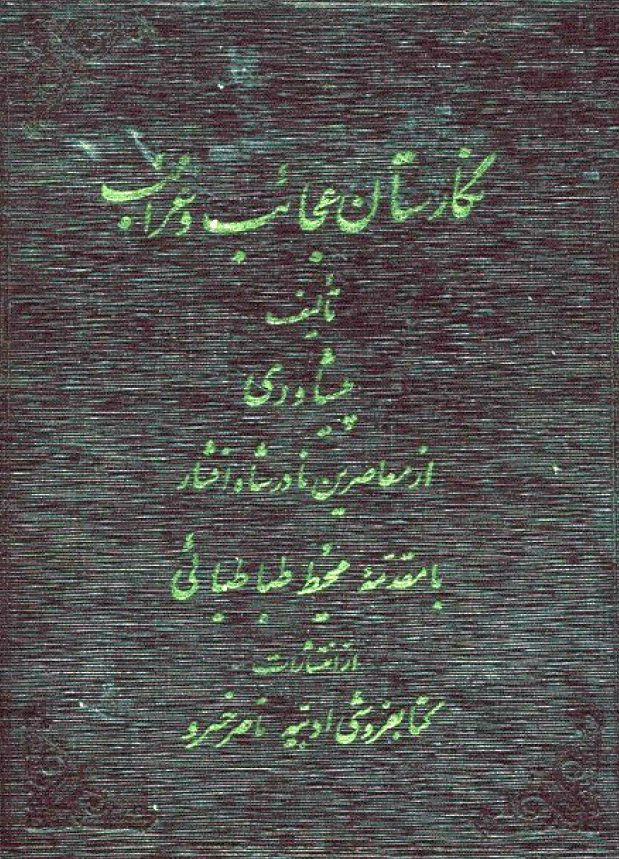 نگارستان عجائب و غرائب
تألیف
پیشاوری
از معاصرین نادرشاه افشار
با مقدمهٔ محیط طباطبائی
از انتشارات
کتابفروشی ادبیه ناصرخسرو